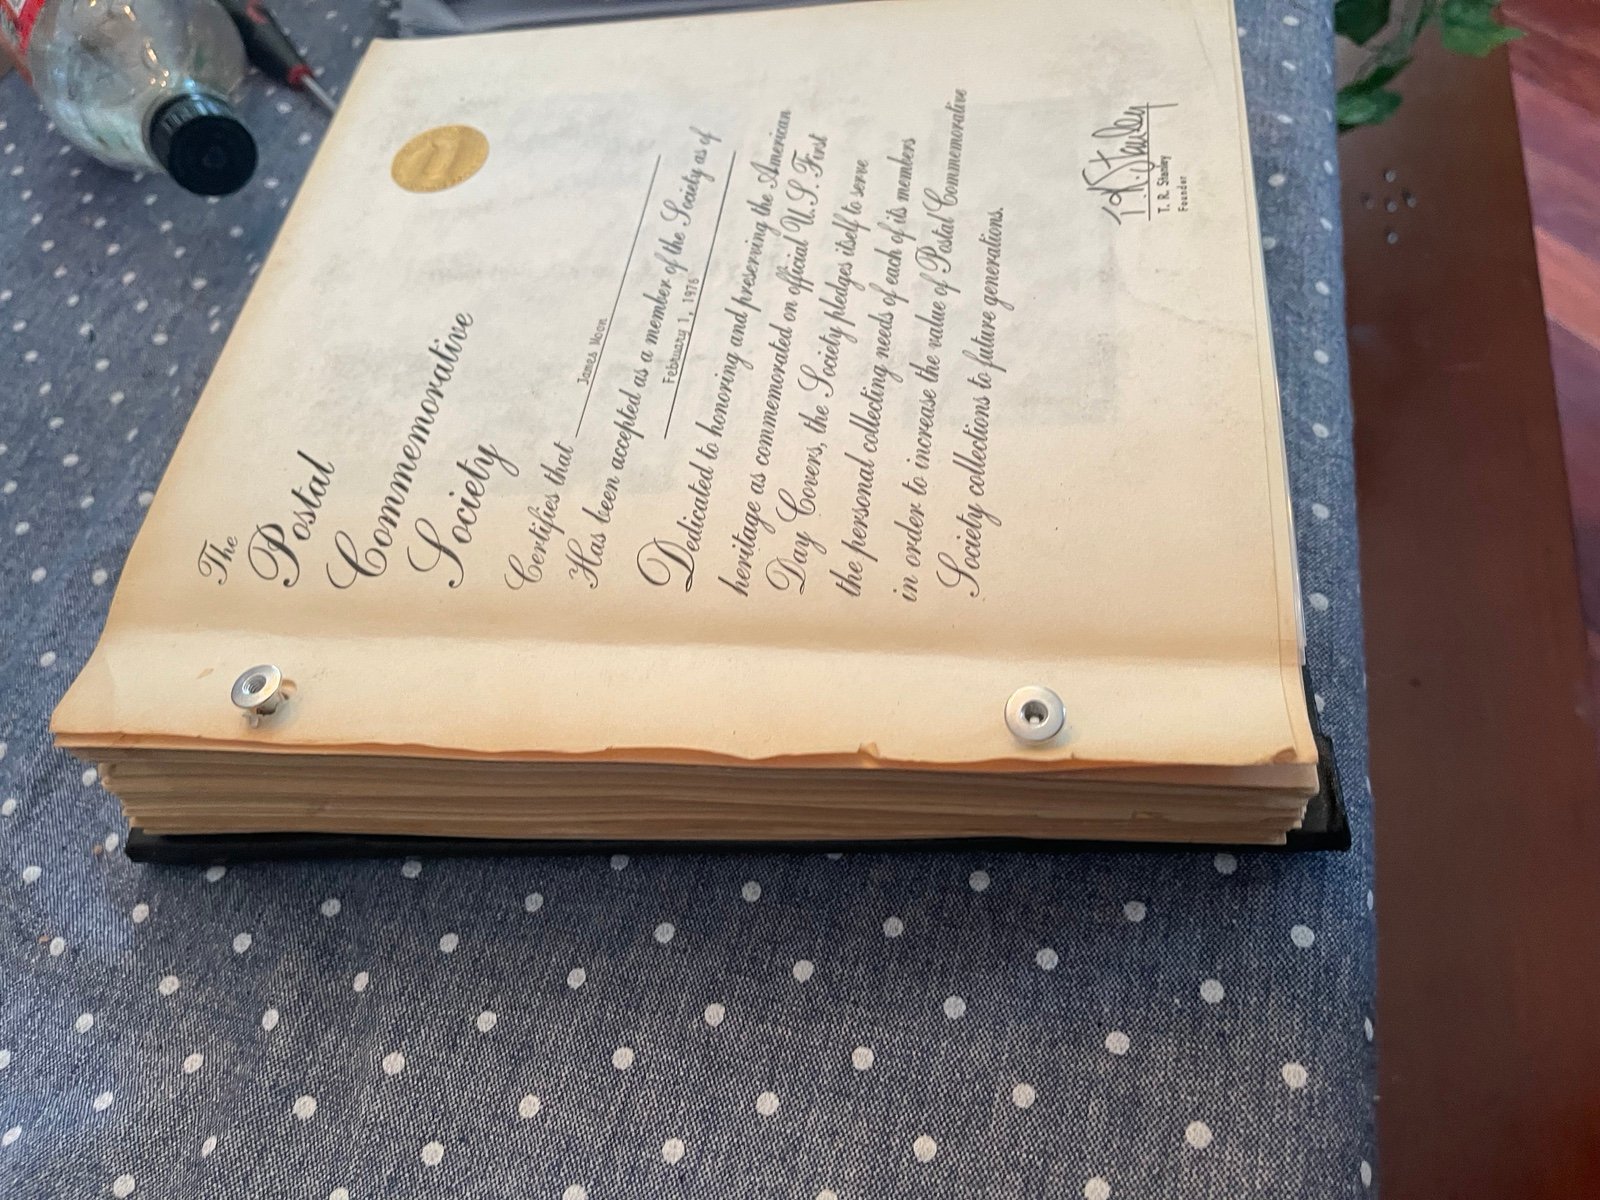 The
Postal
Commemorative
Society
Certifies that James Moon
Has been accepted as a member of the Society as of
February 1, 1976
Dedicated to honoring and preserving the American
heritage as commemorated on official U.S. First
Day Covers, the Society pledges itself to serve
the personal collecting needs of each of its members
in order to increase the value of Postal Commemorative
Society collections to future generations.
T. R. Stanley
T. R. Stanley
Founder